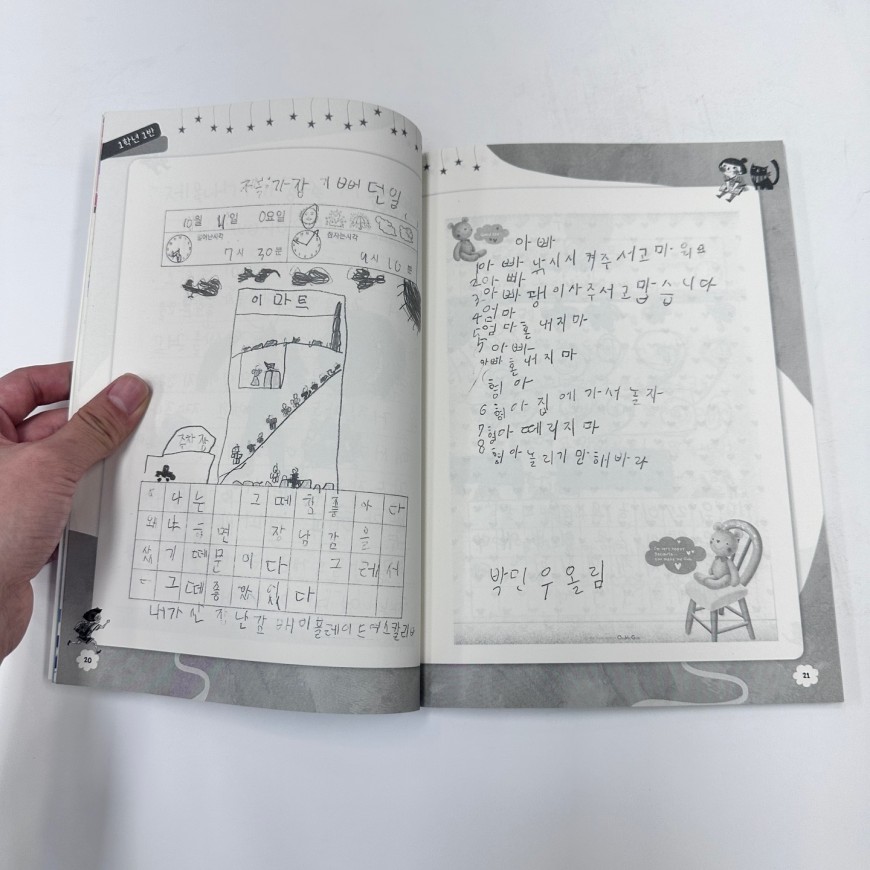 1학년 1반
가장 기뻐던일
10월 11일 0요일
일어난시각
잠자는시각
7시 30분
시 10분
이마트
주차장
나는 그떼 힘 들
하면 장남감을
기떼문이다 그레서
그떼좋았섰다
내가산 지난값 배이플레이드
20
아빠
1아빠 낚시시켜주서고마워요
2아빠
3아빠 팽이사주서고맙습니다
4엄마
5엄마혼내지마
5아빠
아빠혼내지마
형아
6형아집에가서놀자
7형아떼리지마
8형아놀리기만해바라
박민우올림
21